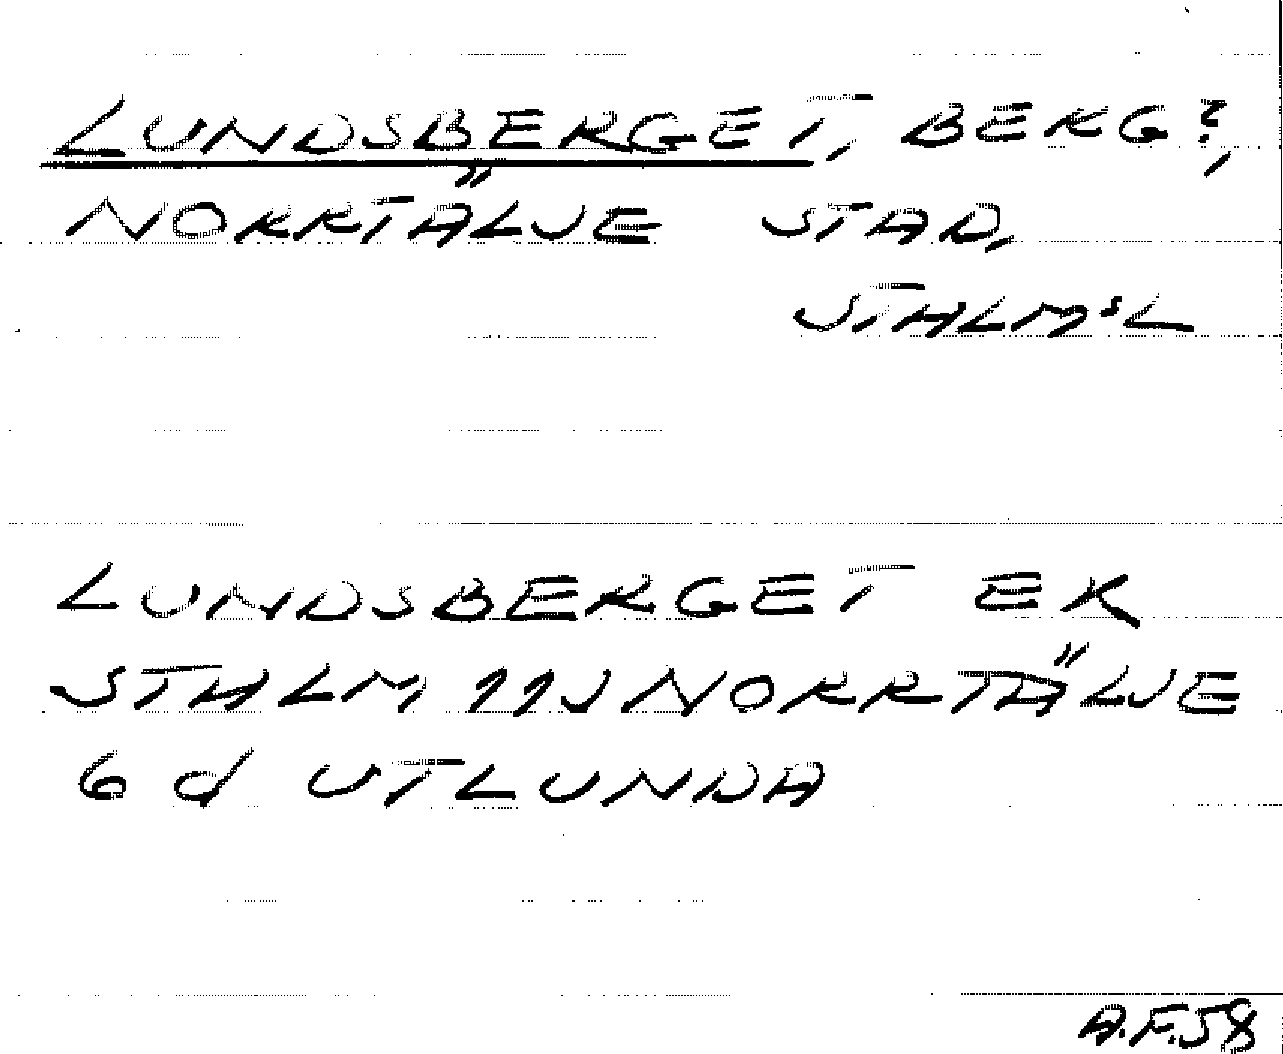 LUNDSBERGET, BERG?,
NORRTÄLJE STAD,
STHLMSL
LUNDSBERGET EK
STHLM 11J NORRTÄLJE
6 d UTLUNDA
A.F.58